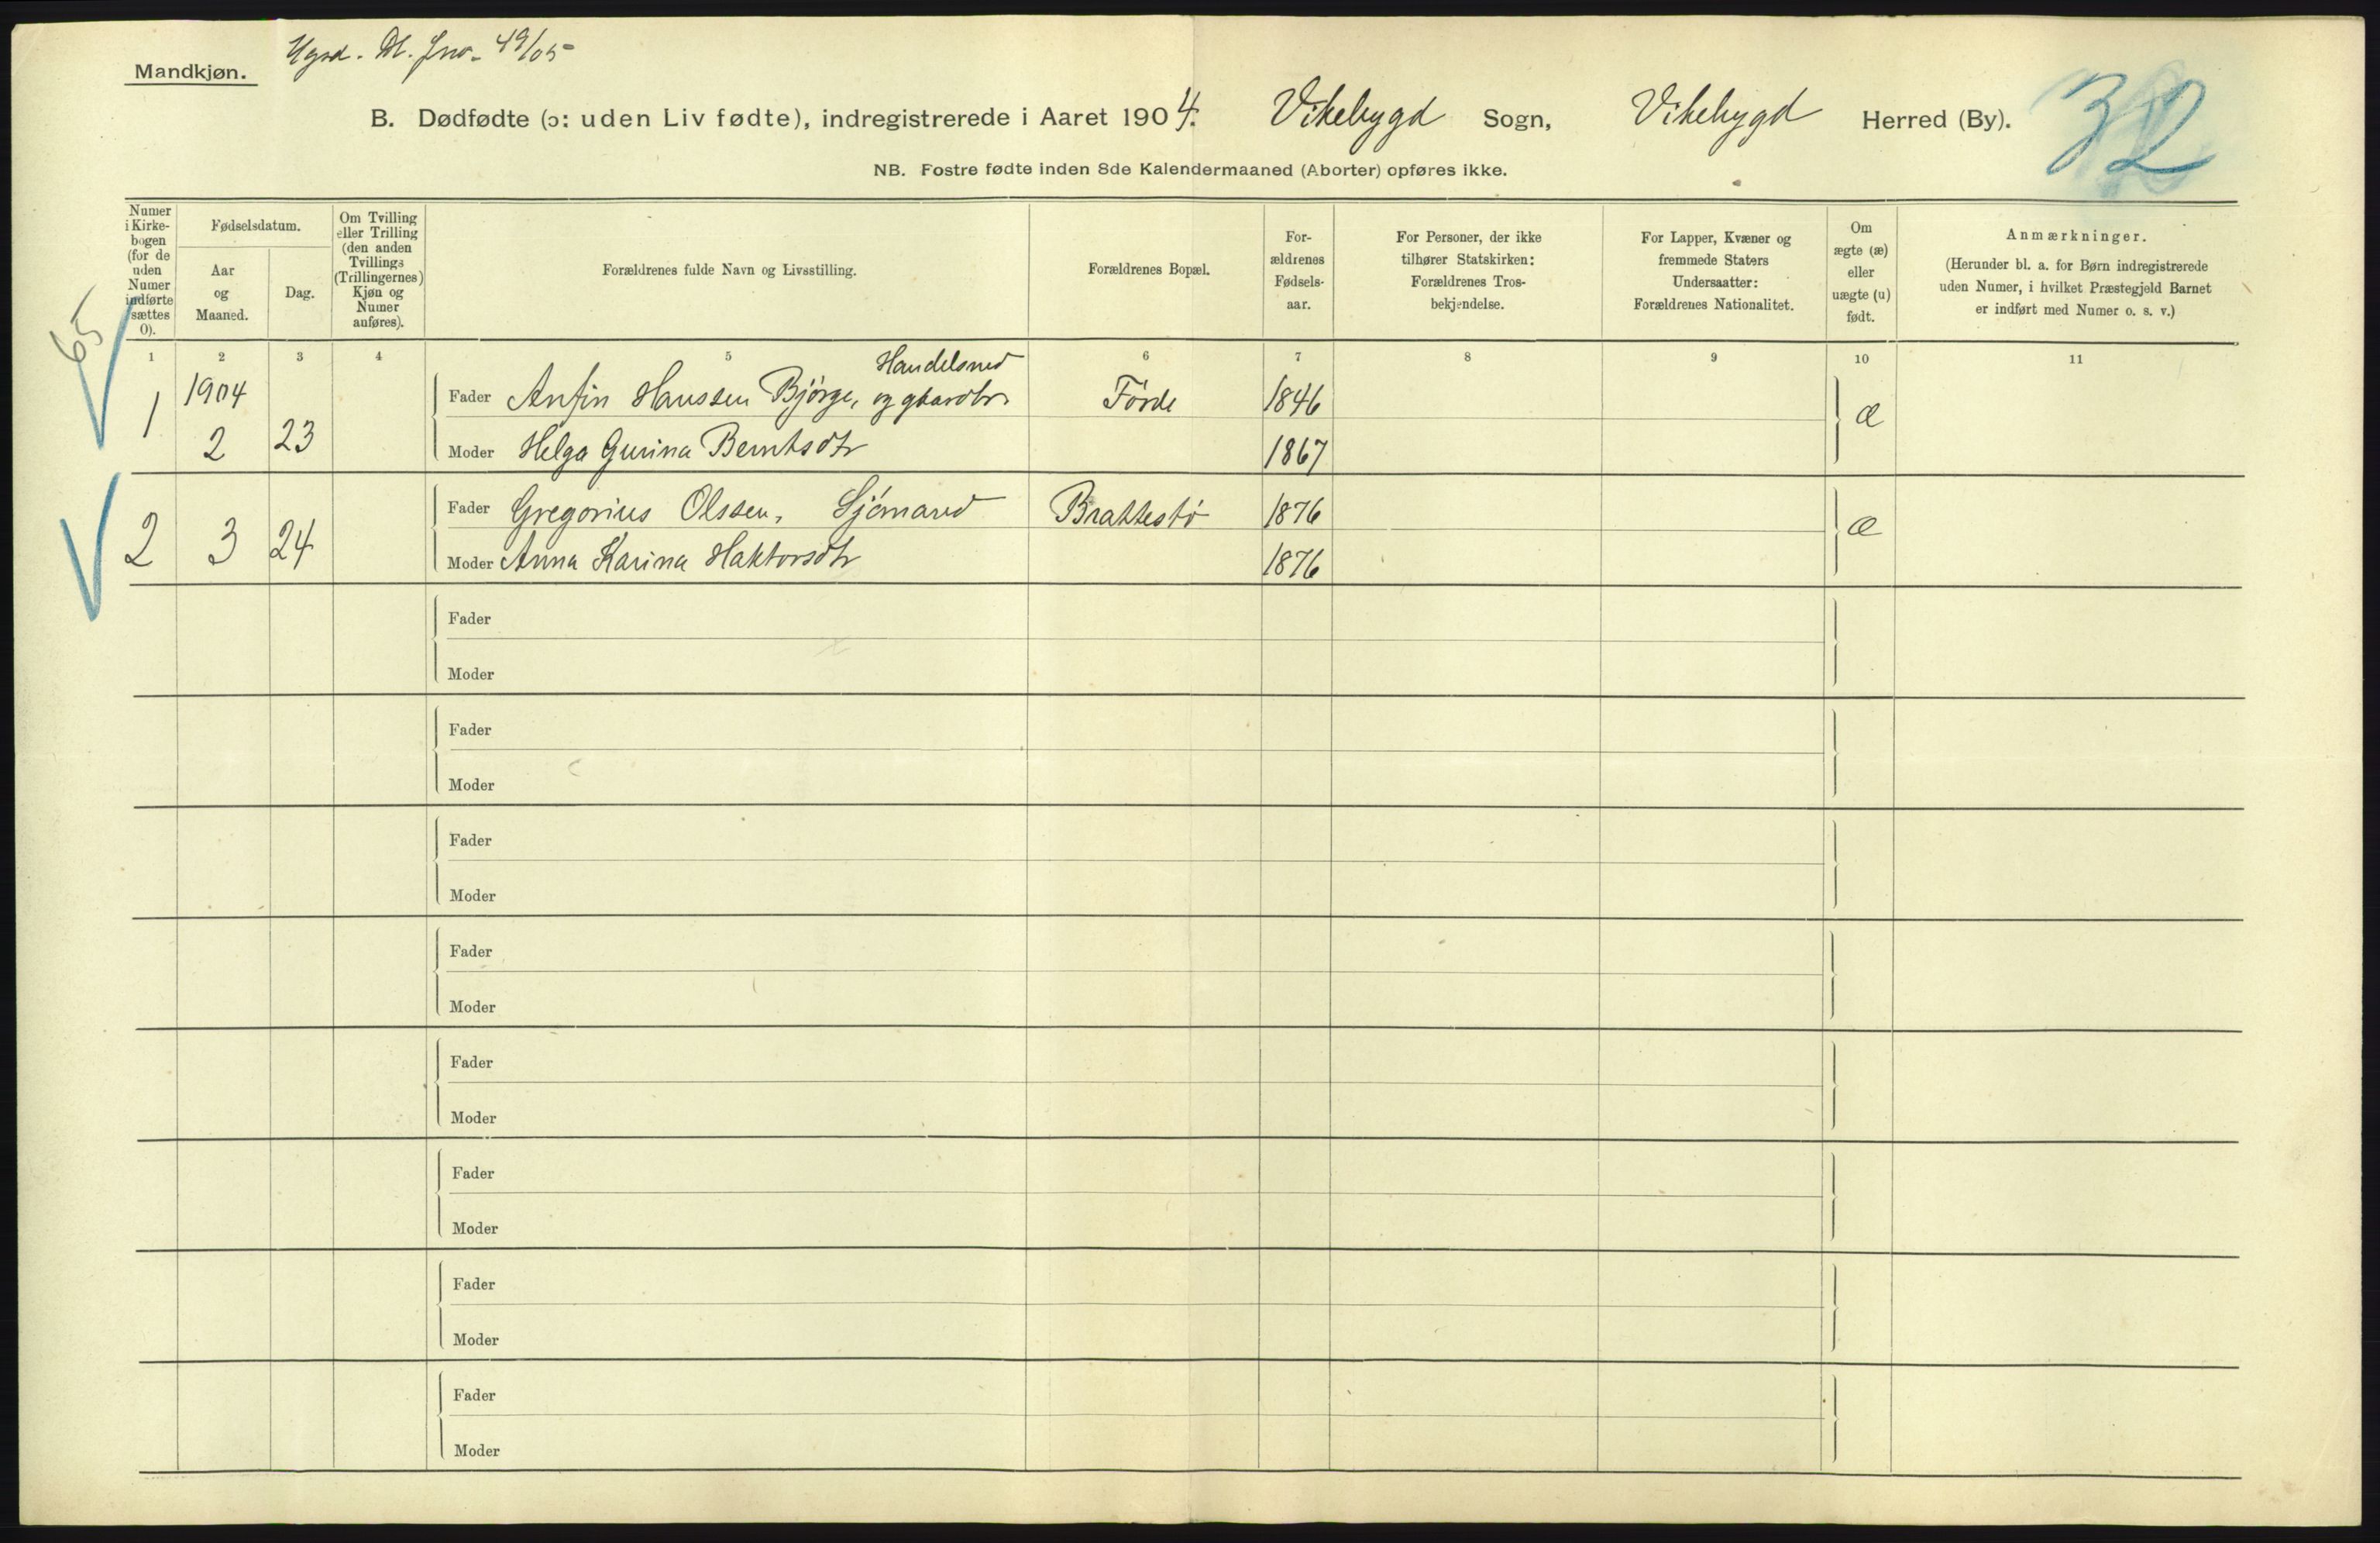 Mandkjøn.
49/05
B. Dødfødte (ɔ: uden Liv fødte), indregistrerede i Aaret 1904. Vikebygd Sogn, Vikebygd Herred (By).
32
NB. Fostre fødte inden 8de Kalendermaaned (Aborter) opføres ikke.
Numer i Kirke-bogen (for de uden Numer indførte sættes 0).
Fødselsdatum.
Aar og Maaned.
Dag.
Om Tvilling eller Trilling (den anden Tvillings (Trillingernes) Kjøn og Numer anføres).
Forældrenes fulde Navn og Livsstilling.
Forældrenes Bopæl.
For-ældrenes Fødsels-aar.
For Personer, der ikke tilhører Statskirken: Forældrenes Tros-bekjendelse.
For Lapper, Kvæner og fremmede Staters Undersaatter: Forældrenes Nationalitet.
Om ægte (æ) eller uægte (u) født.
Anmærkninger.
(Herunder bl. a. for Børn indregistrerede uden Numer, i hvilket Præstegjeld Barnet er indført med Numer o. s. v.)
1 2 3 4 5 6 7 8 9 10 11
65
Handelsmd
1 1904 Fader Anfin Hanssen Bjørge, og gbardbr. Førde 1846 æ
2 23 Moder Helga Gurina Berntsdtr 1867
Fader Gregorius Olssen, Sjømand Brattestø 1876
2 3 24 Moder Anna Karina Haktorsdtr 1876 æ
Fader
Moder
Fader
Moder
Fader
Moder
Fader
Moder
Fader
Moder
Fader
Moder
Fader
Moder
Fader
Moder